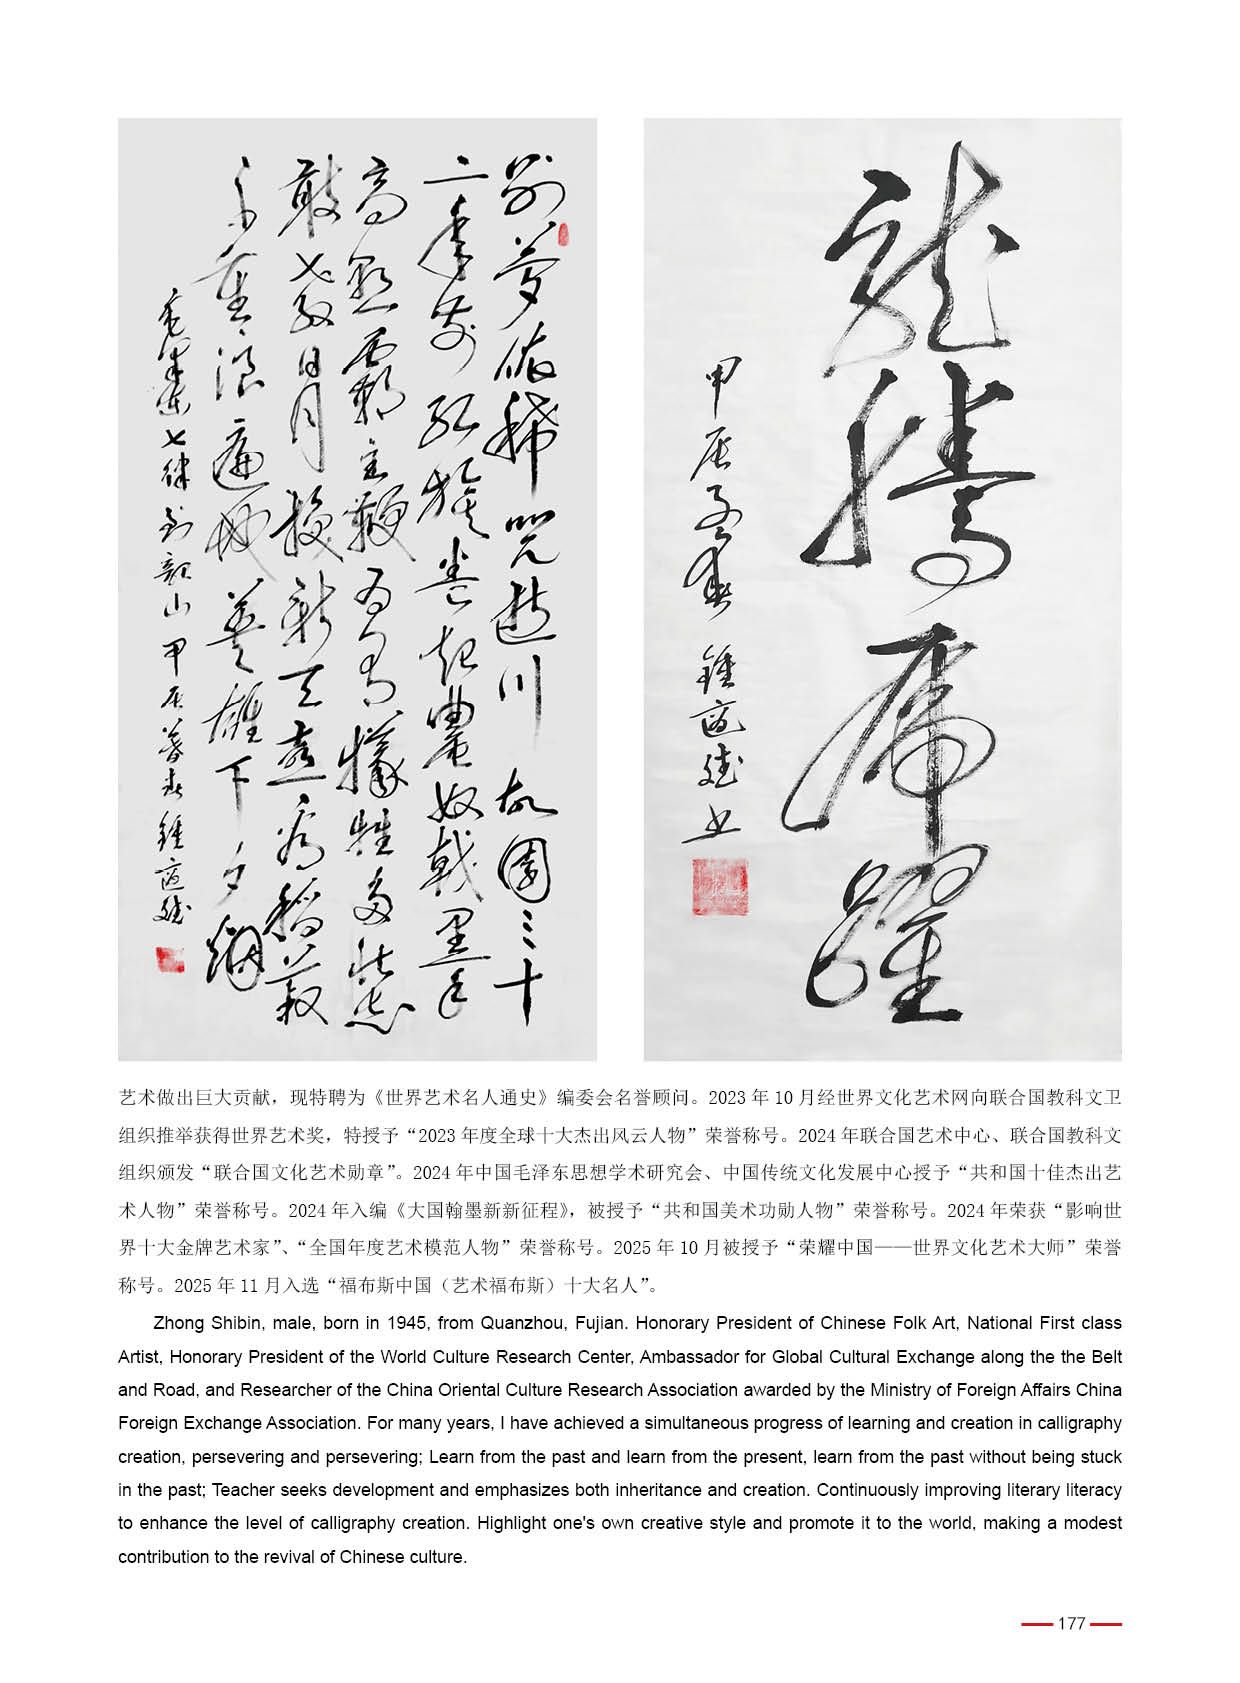 別夢依稀咒逝川故園三十
二年前紅旗卷起農奴戟黑手
高懸霸主鞭為有犧牲多壯志
敢教日月換新天喜看稻菽
千重浪遍地英雄下夕烟
毛澤東七律到韶山甲辰暮春鍾適斌
龍騰虎躍
甲辰
鍾適斌书
艺术做出巨大贡献，现特聘为《世界艺术名人通史》编委会名誉顾问。2023 年 10 月经世界文化艺术网向联合国教科文卫
组织推举获得世界艺术奖，特授予“2023 年度全球十大杰出风云人物”荣誉称号。2024 年联合国艺术中心、联合国教科文
组织颁发“联合国文化艺术勋章”。2024 年中国毛泽东思想学术研究会、中国传统文化发展中心授予“共和国十佳杰出艺
术人物”荣誉称号。2024 年入编《大国翰墨新新征程》，被授予“共和国美术功勋人物”荣誉称号。2024 年荣获“影响世
界十大金牌艺术家”、“全国年度艺术模范人物”荣誉称号。2025 年 10 月被授予“荣耀中国——世界文化艺术大师”荣誉
称号。2025 年 11 月入选“福布斯中国（艺术福布斯）十大名人”。
Zhong Shibin, male, born in 1945, from Quanzhou, Fujian. Honorary President of Chinese Folk Art, National First class
Artist, Honorary President of the World Culture Research Center, Ambassador for Global Cultural Exchange along the the Belt
and Road, and Researcher of the China Oriental Culture Research Association awarded by the Ministry of Foreign Affairs China
Foreign Exchange Association. For many years, I have achieved a simultaneous progress of learning and creation in calligraphy
creation, persevering and persevering; Learn from the past and learn from the present, learn from the past without being stuck
in the past; Teacher seeks development and emphasizes both inheritance and creation. Continuously improving literary literacy
to enhance the level of calligraphy creation. Highlight one's own creative style and promote it to the world, making a modest
contribution to the revival of Chinese culture.
177